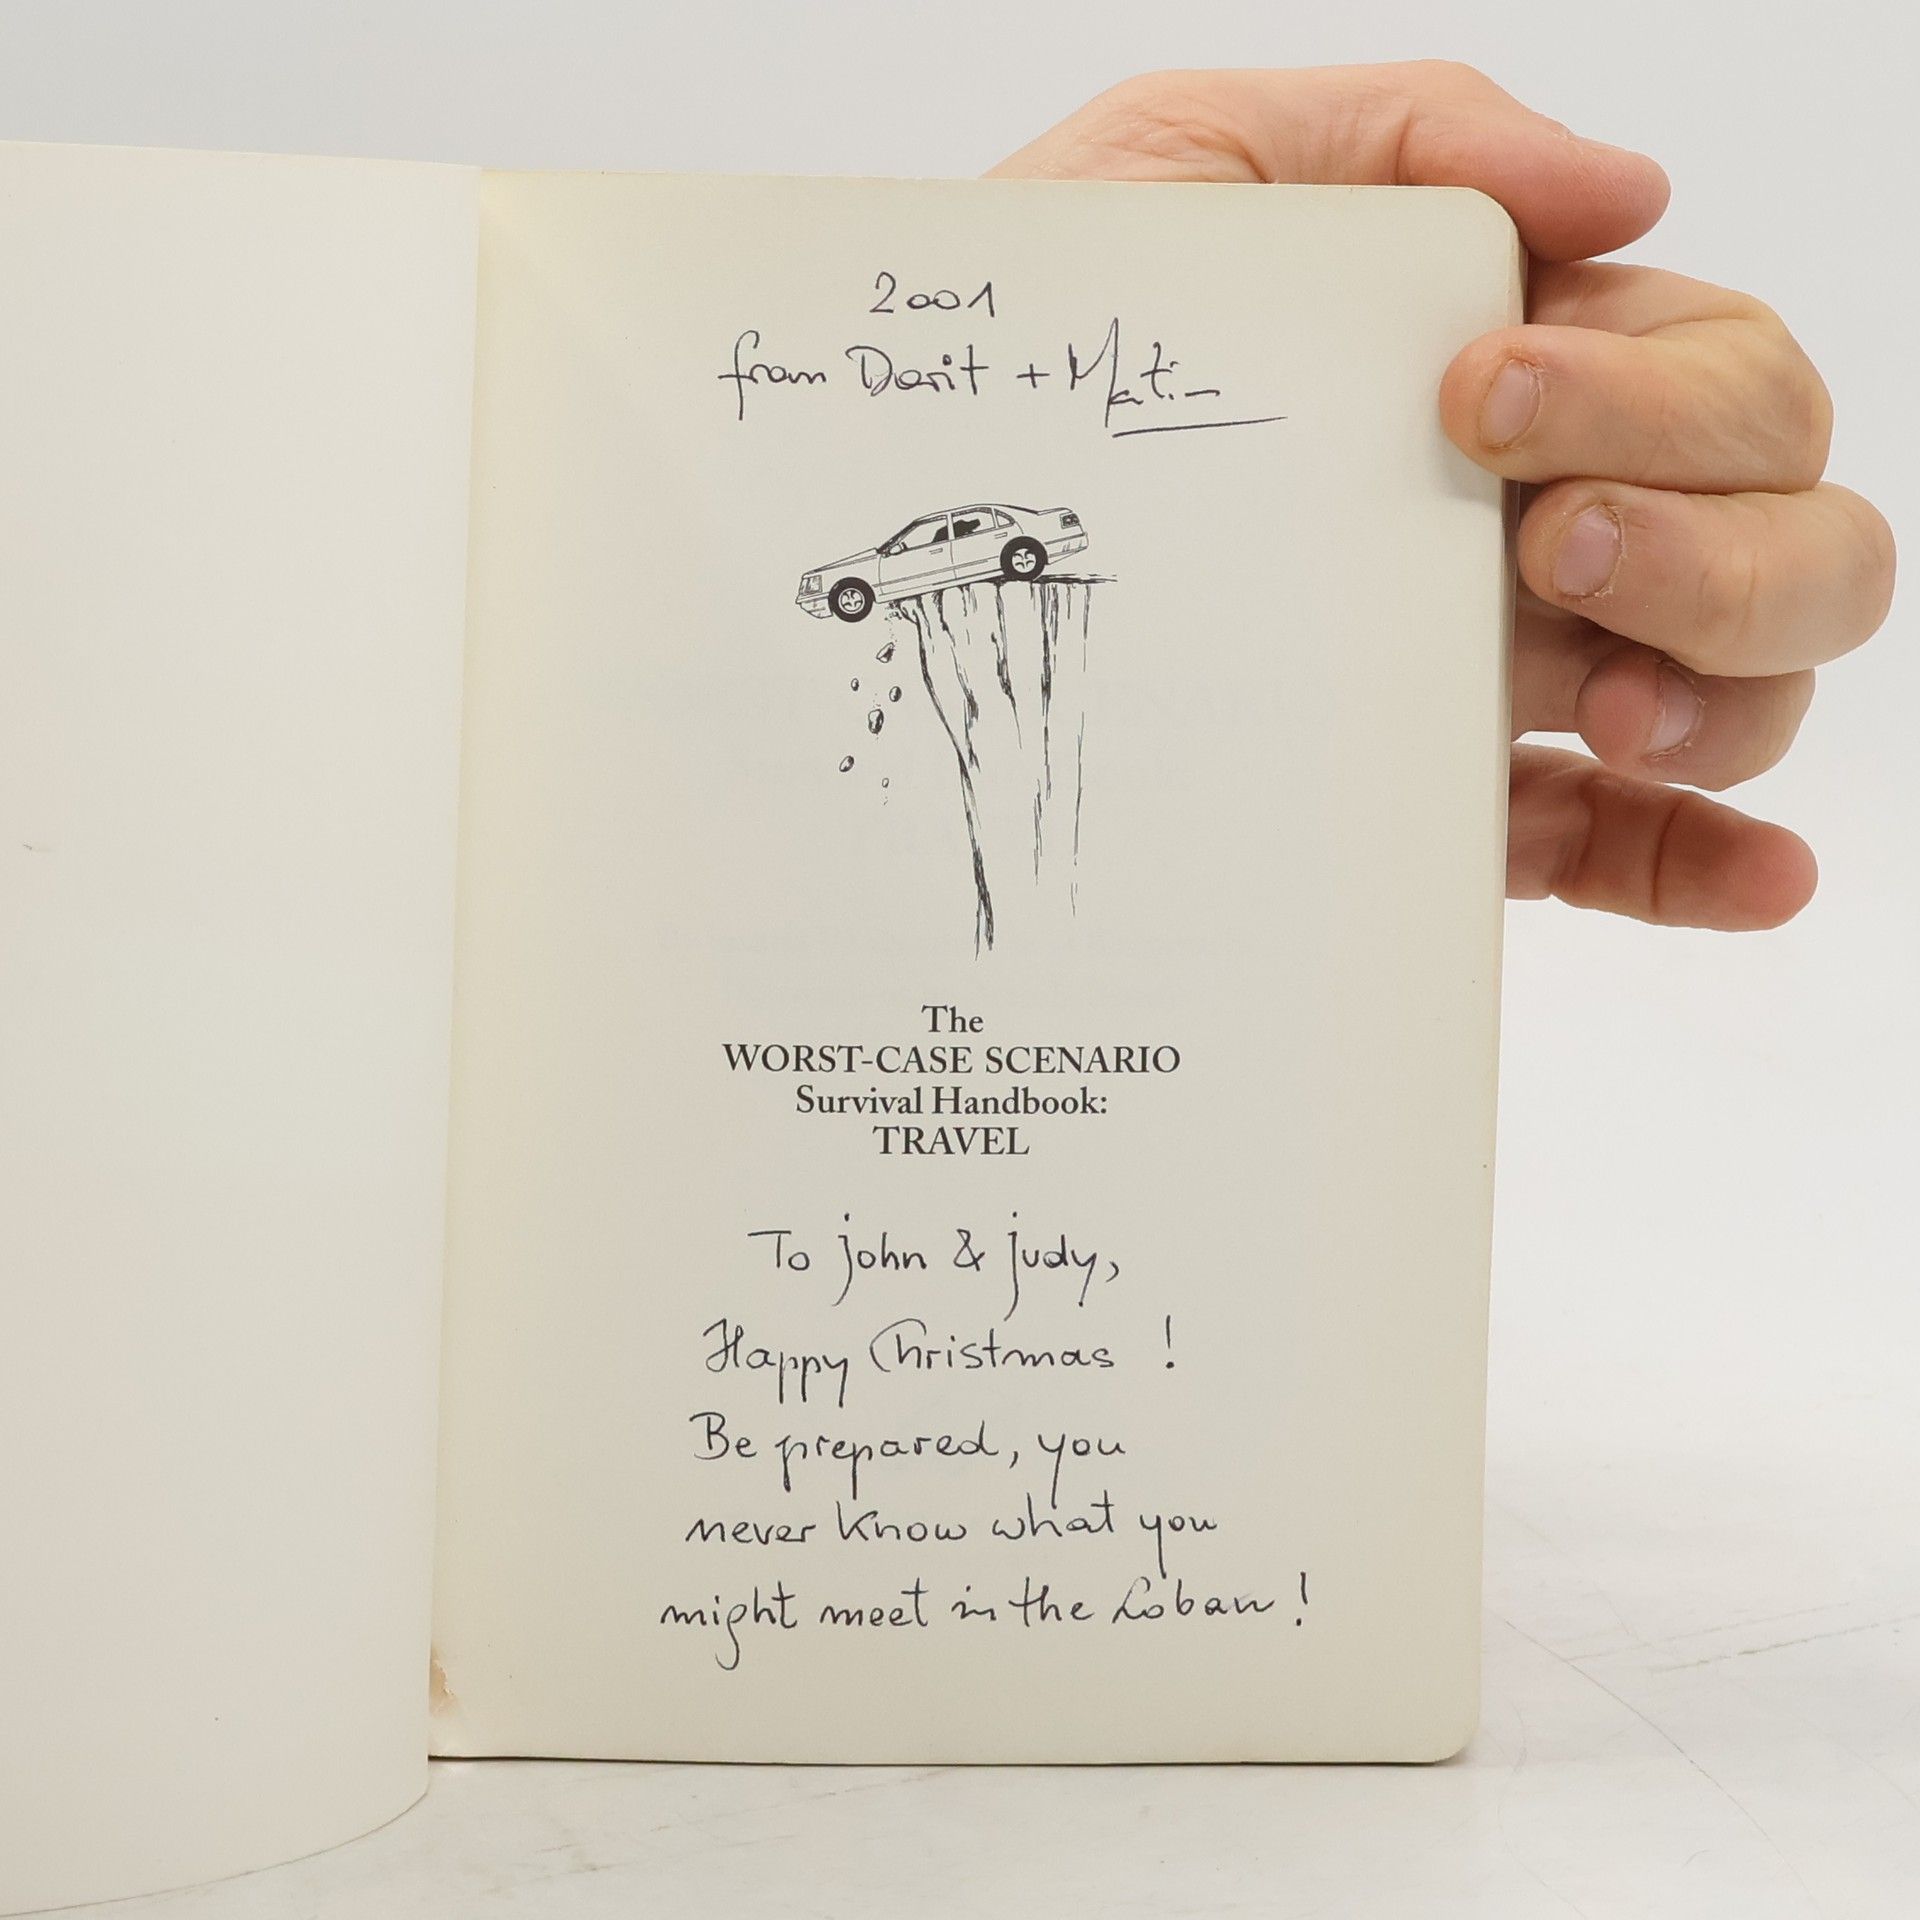 2001
from Dorit + Martin
The
WORST-CASE SCENARIO
Survival Handbook:
TRAVEL
To john & judy,
Happy Christmas !
Be prepared, you
never know what you
might meet in the Lobau !